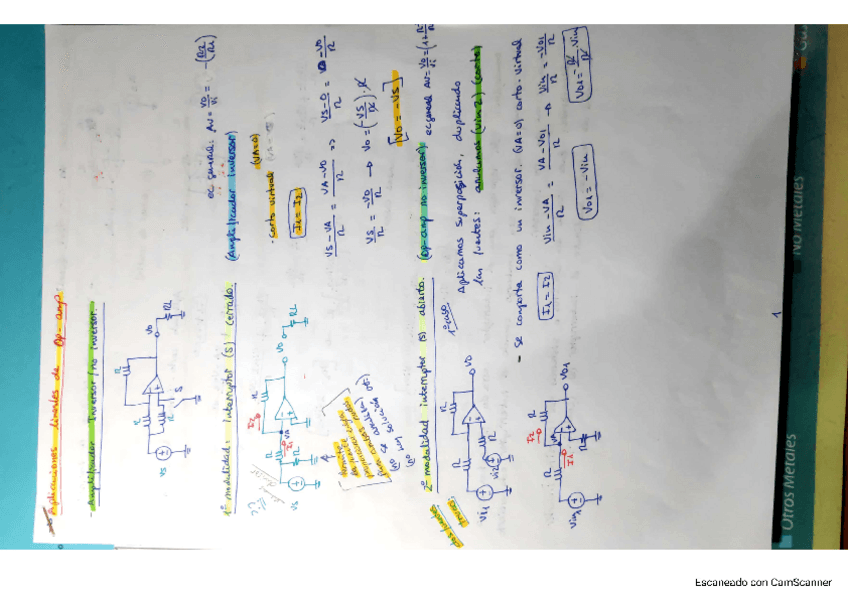 Aplicaciones lineales de Op-amp
- Amplificador Inversor/no inversor.
R
R
R
S
Vs
Vo
RL
ec general: Av = Vo/Vi = -(R2/R1)
1º modalidad: interruptor (S) cerrado. (Amplificador inversor)
- corto virtual (VA=0)
I1 = I2
I2
R
R
I1
VA
Vs
Vo
RL
(Vs-VA)/R = (VA-Vo)/R => (Vs-0)/R = (VA-Vo)/R
Vs/R = -Vo/R → Vo = (-Vs/R)·R
[Vo = -Vs]
2º modalidad interruptor (S) abierto. (Op-amp no inversor) ec general Av = Vo/Vi = (1+
dos fuentes
1º caso
Aplicamos superposición, duplicando
las fuentes: anulamos (vin2) (corto)
R
R
Vi1
Vi2
Vo
- Se comporta como un inversor. (VA=0) corto-virtual
I1 = I2
(Vin-VA)/R = (VA-Vo1)/R → Vin/R = -Vo1/R
Vo1 = -Vin
Vo1 = -R/R·Vin
I2
R
R
I1
R
Vin1
Vo1
1
Otros Metales
No Metales
Escaneado con CamScanner